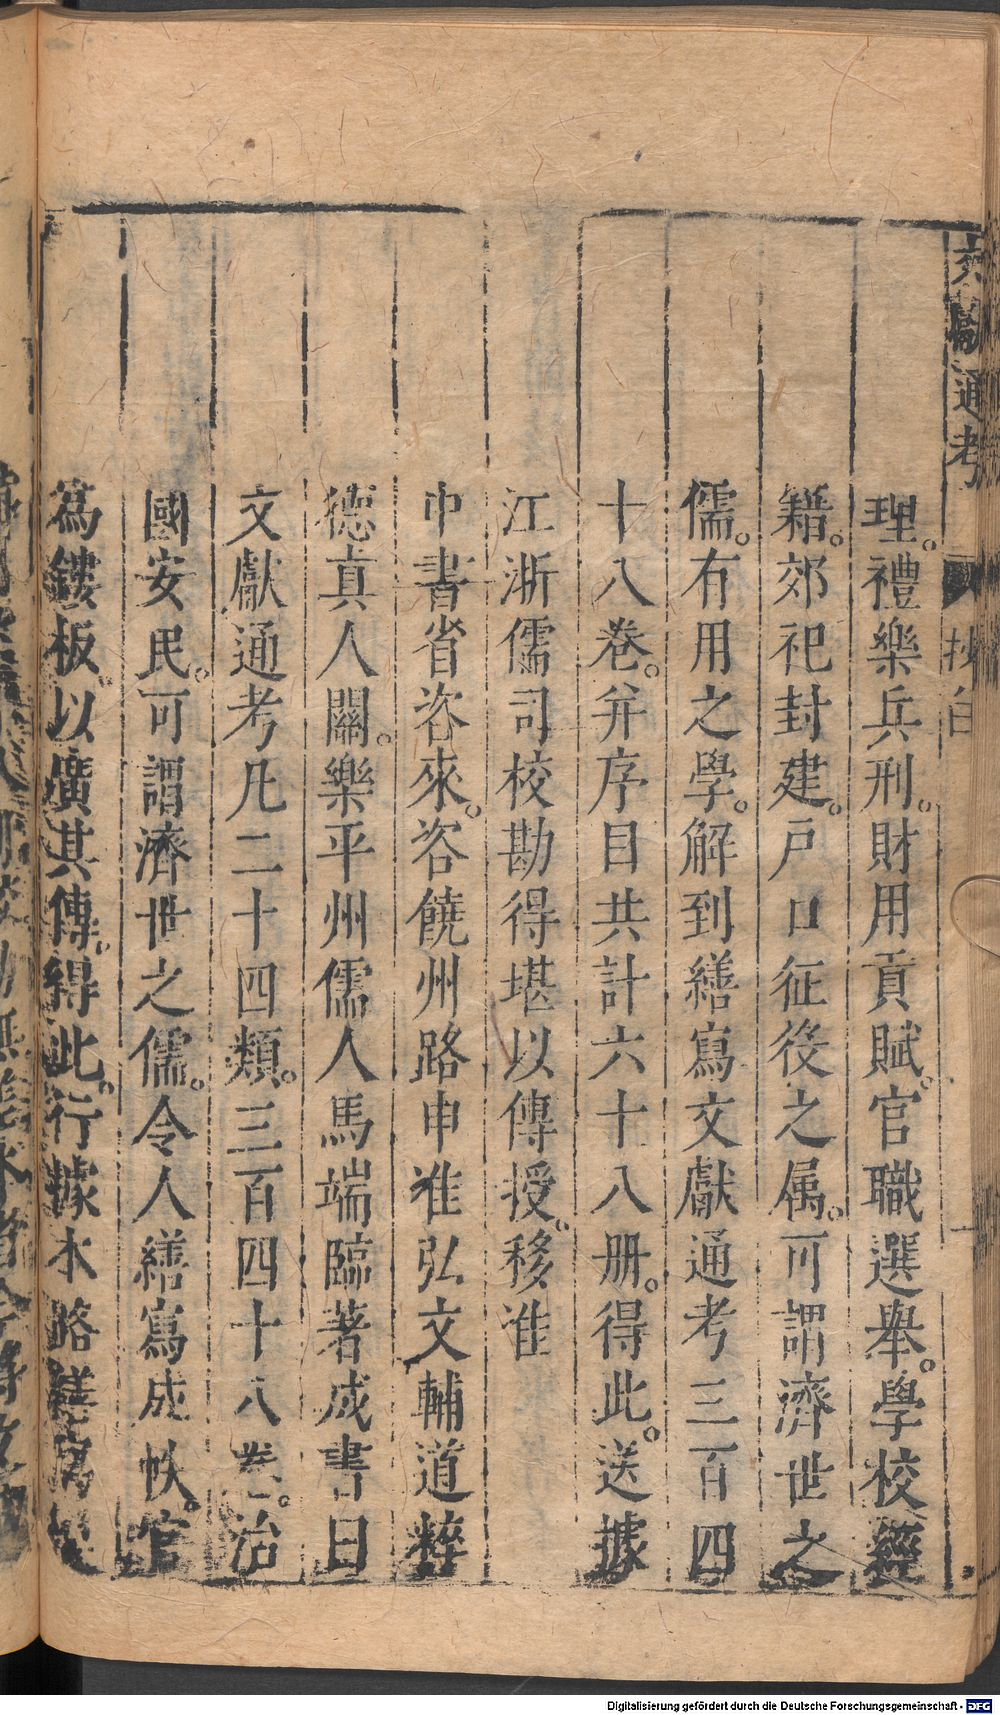 文獻通考 抄白 一
理。禮樂兵刑。財用貢賦。官職選舉。學校經
籍。郊祀封建。戶口征役之属。可謂濟世之
儒。有用之學。解到繕寫文獻通考三百四
十八卷。并序目共計六十八册。得此。送據
江浙儒司校勘得堪以傳授。移准
中書省咨來。咨饒州路申准弘文輔道粹
德真人關。樂平州儒人馬端臨著成書曰
文獻通考凡二十四類。三百四十八卷。治
國安民。可謂濟世之儒。令人繕寫成帙。官
爲鏤板。以廣其傳。得此。行據本路繕寫
Digitalisierung gefördert durch die Deutsche Forschungsgemeinschaft - DFG